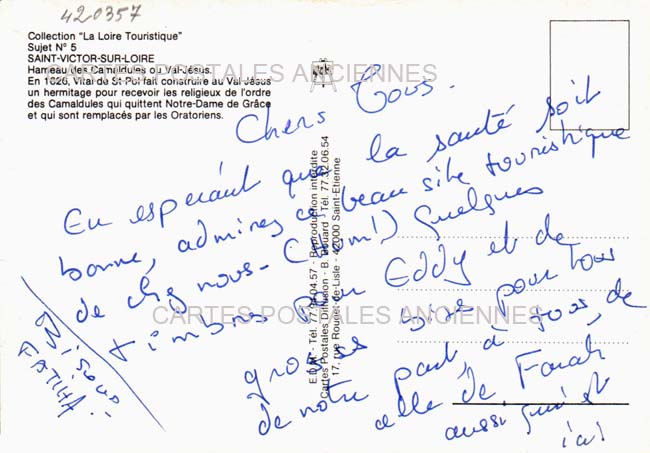 420357
Collection "La Loire Touristique"
Sujet N° 5
SAINT-VICTOR-SUR-LOIRE
Hameau des Camaldules ou Val-Jésus.
En 1626, Vital de St-Pol fait construire au Val-Jésus
un hermitage pour recevoir les religieux de l'ordre
des Camaldules qui quittent Notre-Dame de Grâce
et qui sont remplacés par les Oratoriens.
CARTES POSTALES ANCIENNES
Chers Tous.
En espérant que la santé soit
bonne, admirez ce beau site touristique
de chez nous - (Hum!) Quelques
timbres pour Eddy et de
grosses bises pour tous
de notre part, à tous, de
celle de Farah
aussi qui est
ici
Bisous
FATIHA
CARTES POSTALES ANCIENNES
Reproduction interdite
Cartes Postales Diffusion - B. Rouard Tél. 77.32.06.54
17, rue Rouget-de-Lisle - 42000 Saint-Etienne